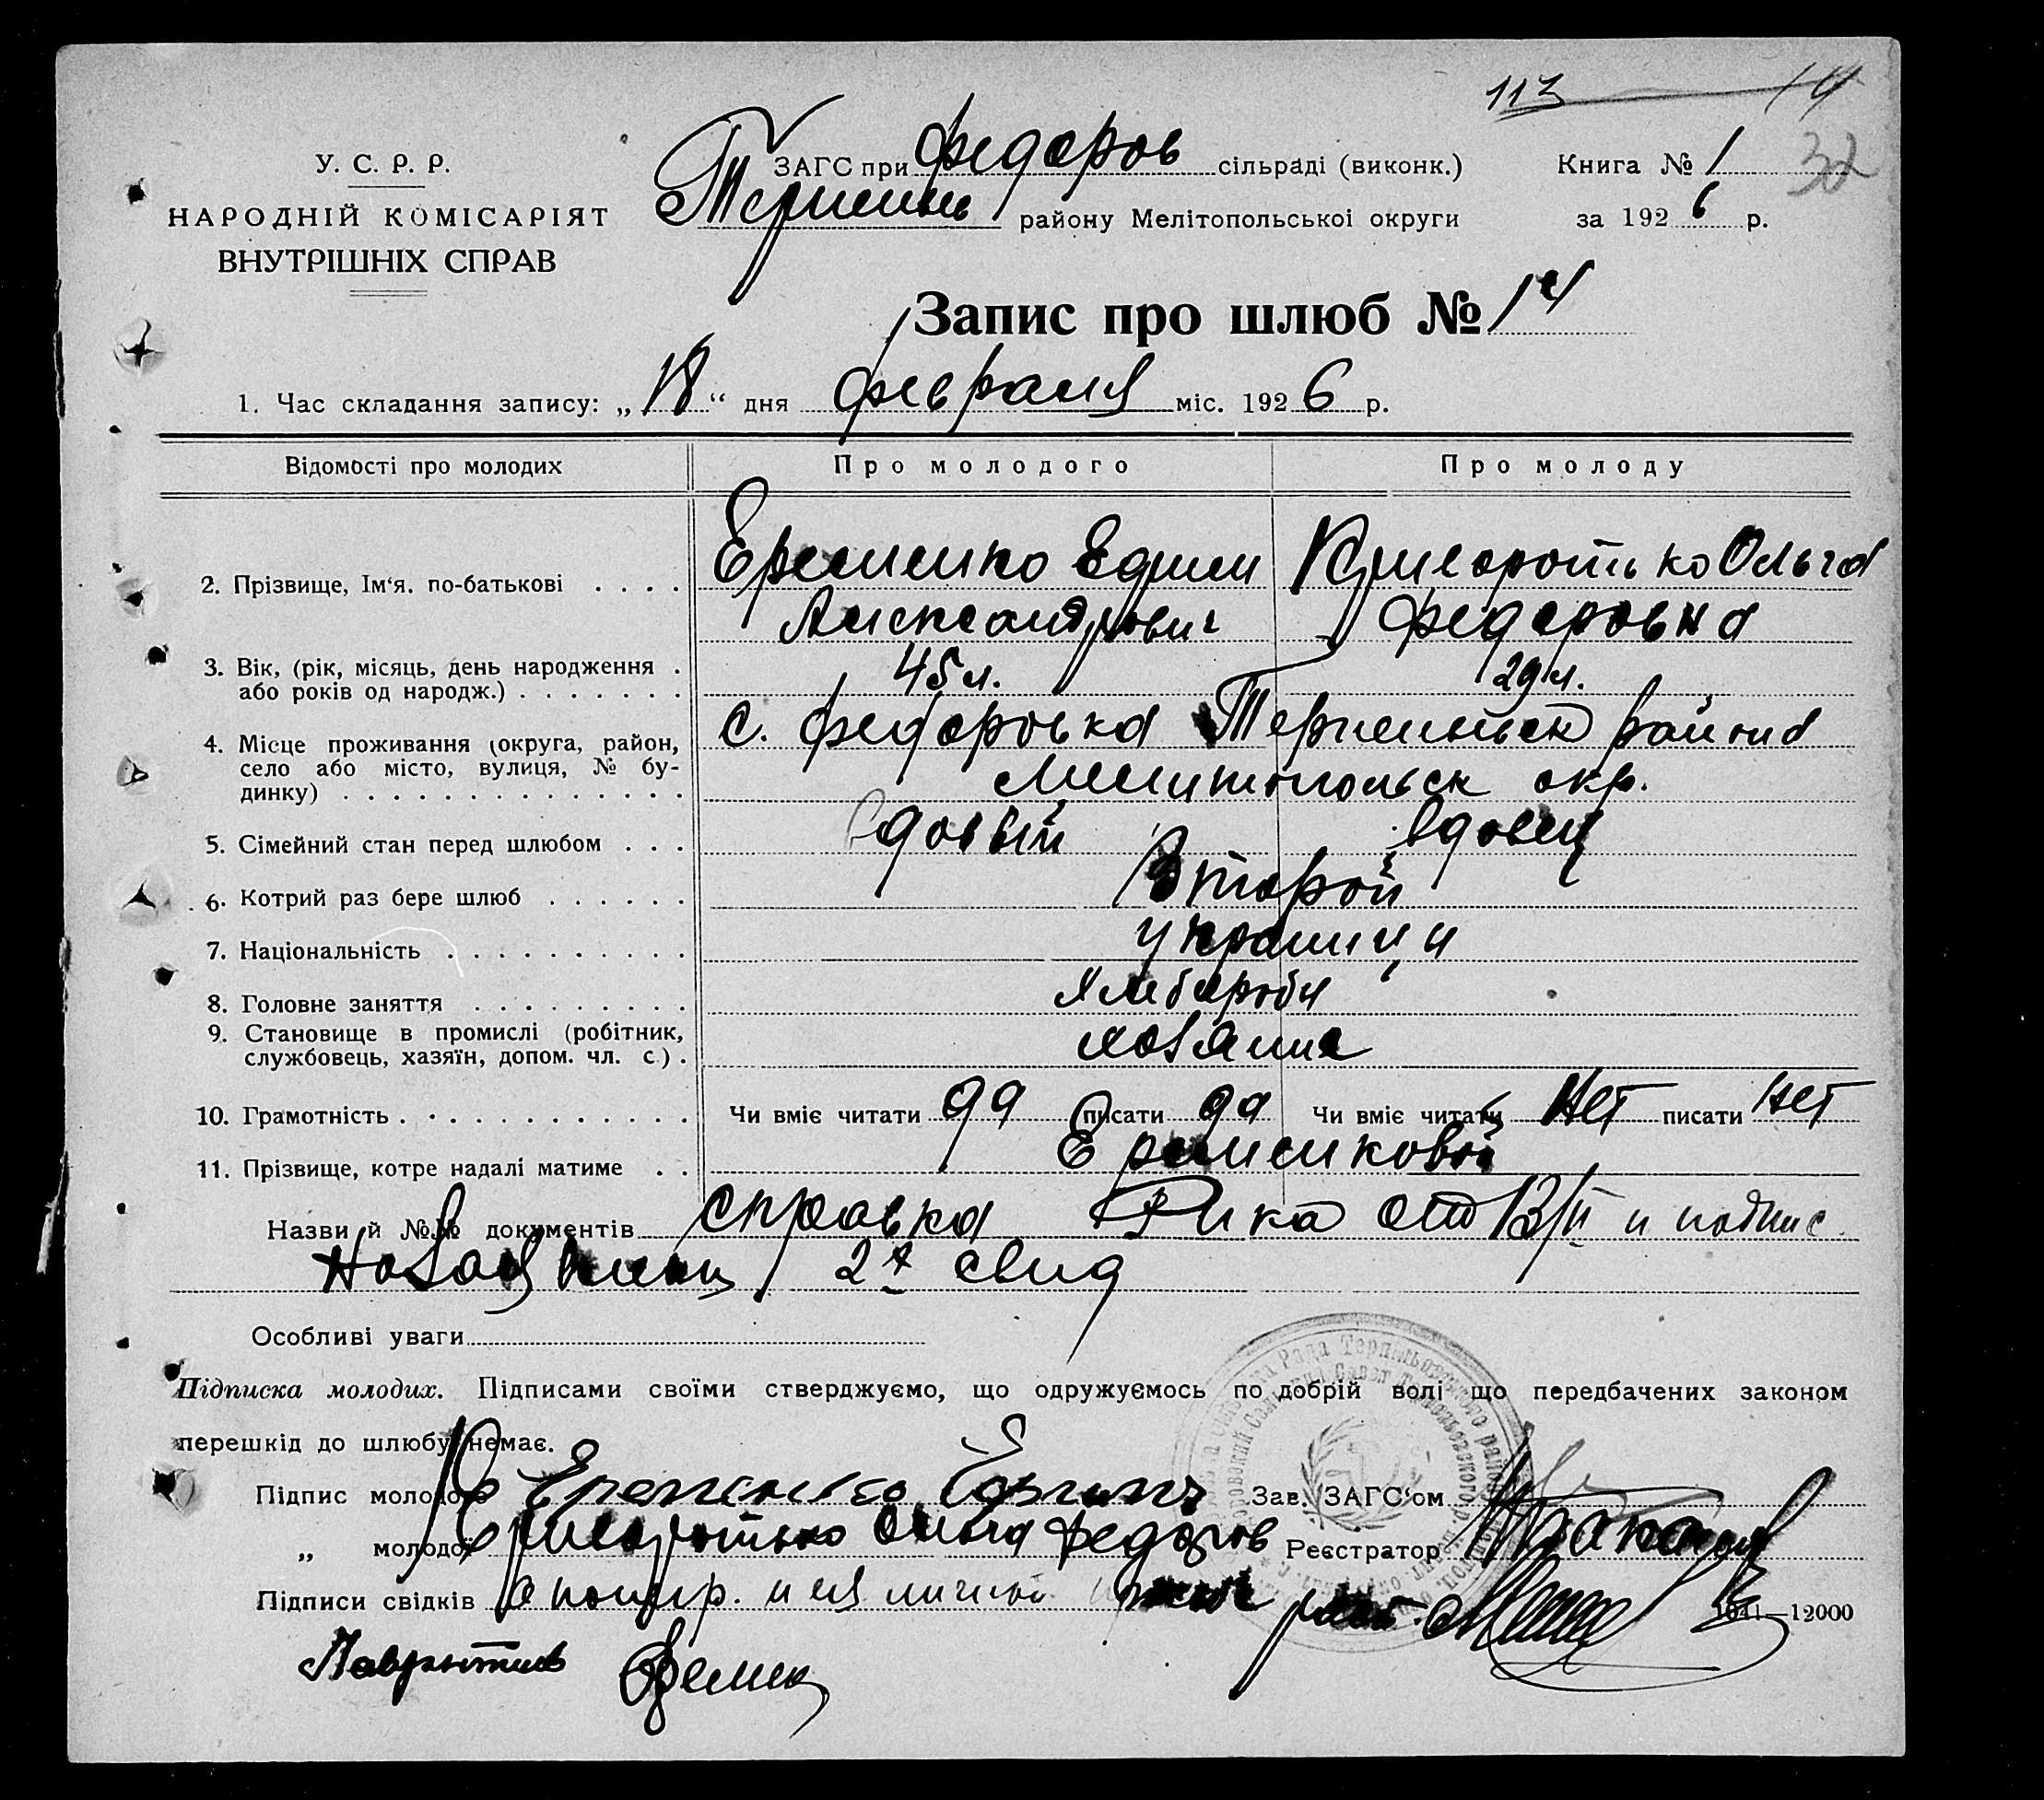 113 14
32
У. С. Р. Р.
НАРОДНІЙ КОМІСАРІЯТ
ВНУТРІШНІХ СПРАВ
ЗАГС при федоров сільраді (виконк.) Книга № 1
Терпень району Мелітопольськоі округи за 1926 р.
Запис про шлюб № 14
1. Час складання запису: „18“ дня февраля міс. 1926 р.
Відомості про молодих Про молодого Про молоду
2. Прізвище, Ім‘я. по-батькові . . . . Еременко Ефим Ольга
Александрович Федоровна
3. Вік, (рік, місяць, день народження . 45 л. 29 л.
або років од народж.) . . . . . . .
4. Місце проживання (округа, район, с. федоровка Терпеньск района
село або місто, вулиця, № бу- Мелитопольск окр.
динку) . . . . . . . . . . . . . .
5. Сімейний стан перед шлюбом . . . вдовый вдовец
6. Котрий раз бере шлюб . . . . . . Второй
7. Національність . . . . . . . . . . украинци
8. Головне заняття . . . . . . . . . Хлебороби
9. Становище в промислі (робітник,
службовець, хазяїн, допом. чл. с.) . хозяина
10. Грамотність . . . . . . . . . . . . Чи вміє читати да писати да Чи вміє читати Нет писати Нет
11. Прізвище, котре надалі матиме . .
Назви й №№ документів справка Рика от 13/II и
2х свид
Особливі уваги
Підписка молодих. Підписами своїми стверджуємо, що одружуємось по добрій волі що передбачених законом
перешкід до шлюбу немає.
Підпис молодого Еременко Ефим Зав. ЗАГС‘ом
„ молодої Ольга Федоров Реєстратор
Підписи свідків 1041—12000